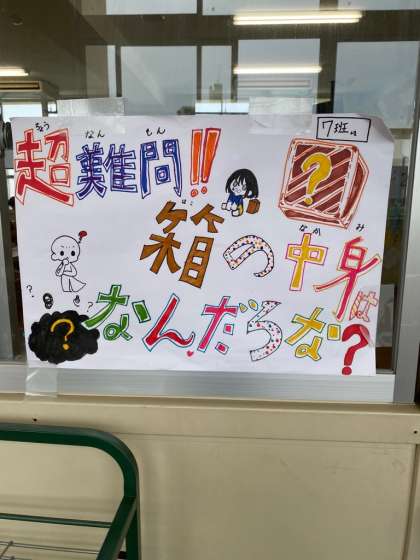 7班
ちょう なん もん
超難問!!
はこ なか み
箱の中身は
なんだろな?
? ?
?
?